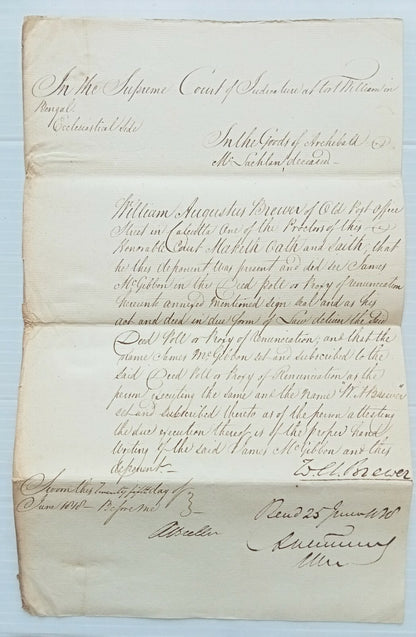 In the Supreme Court of Judicature at Fort William in
Bengal
Ecclesiastical Side
In the Goods of Archibald
McLachlan, deceased
William Augustus Brewer of Old Post Office
Street in Calcutta One of the Proctors of this
Honorable Court Maketh Oath and Saith, that
he this deponent was present and did see James
McGibbon in the Deed Poll or Proxy of renunciation
hereunto annexed mentioned sign seal and as his
act and deed in due form of Law deliver the said
Deed Poll or Proxy of Renunciation, and that the
name James McGibbon set and subscribed to the
said Deed Poll or Proxy of Renunciation as the
person executing the same and the name "W A Brewer"
set and subscribed thereto as of the person attesting
the due execution thereof is of the proper hand
writing of the said James McGibbon and this
deponent
W. A. Brewer
Sworn this Twenty fifth day of
June 1818 Before me
Read 25 June 1818